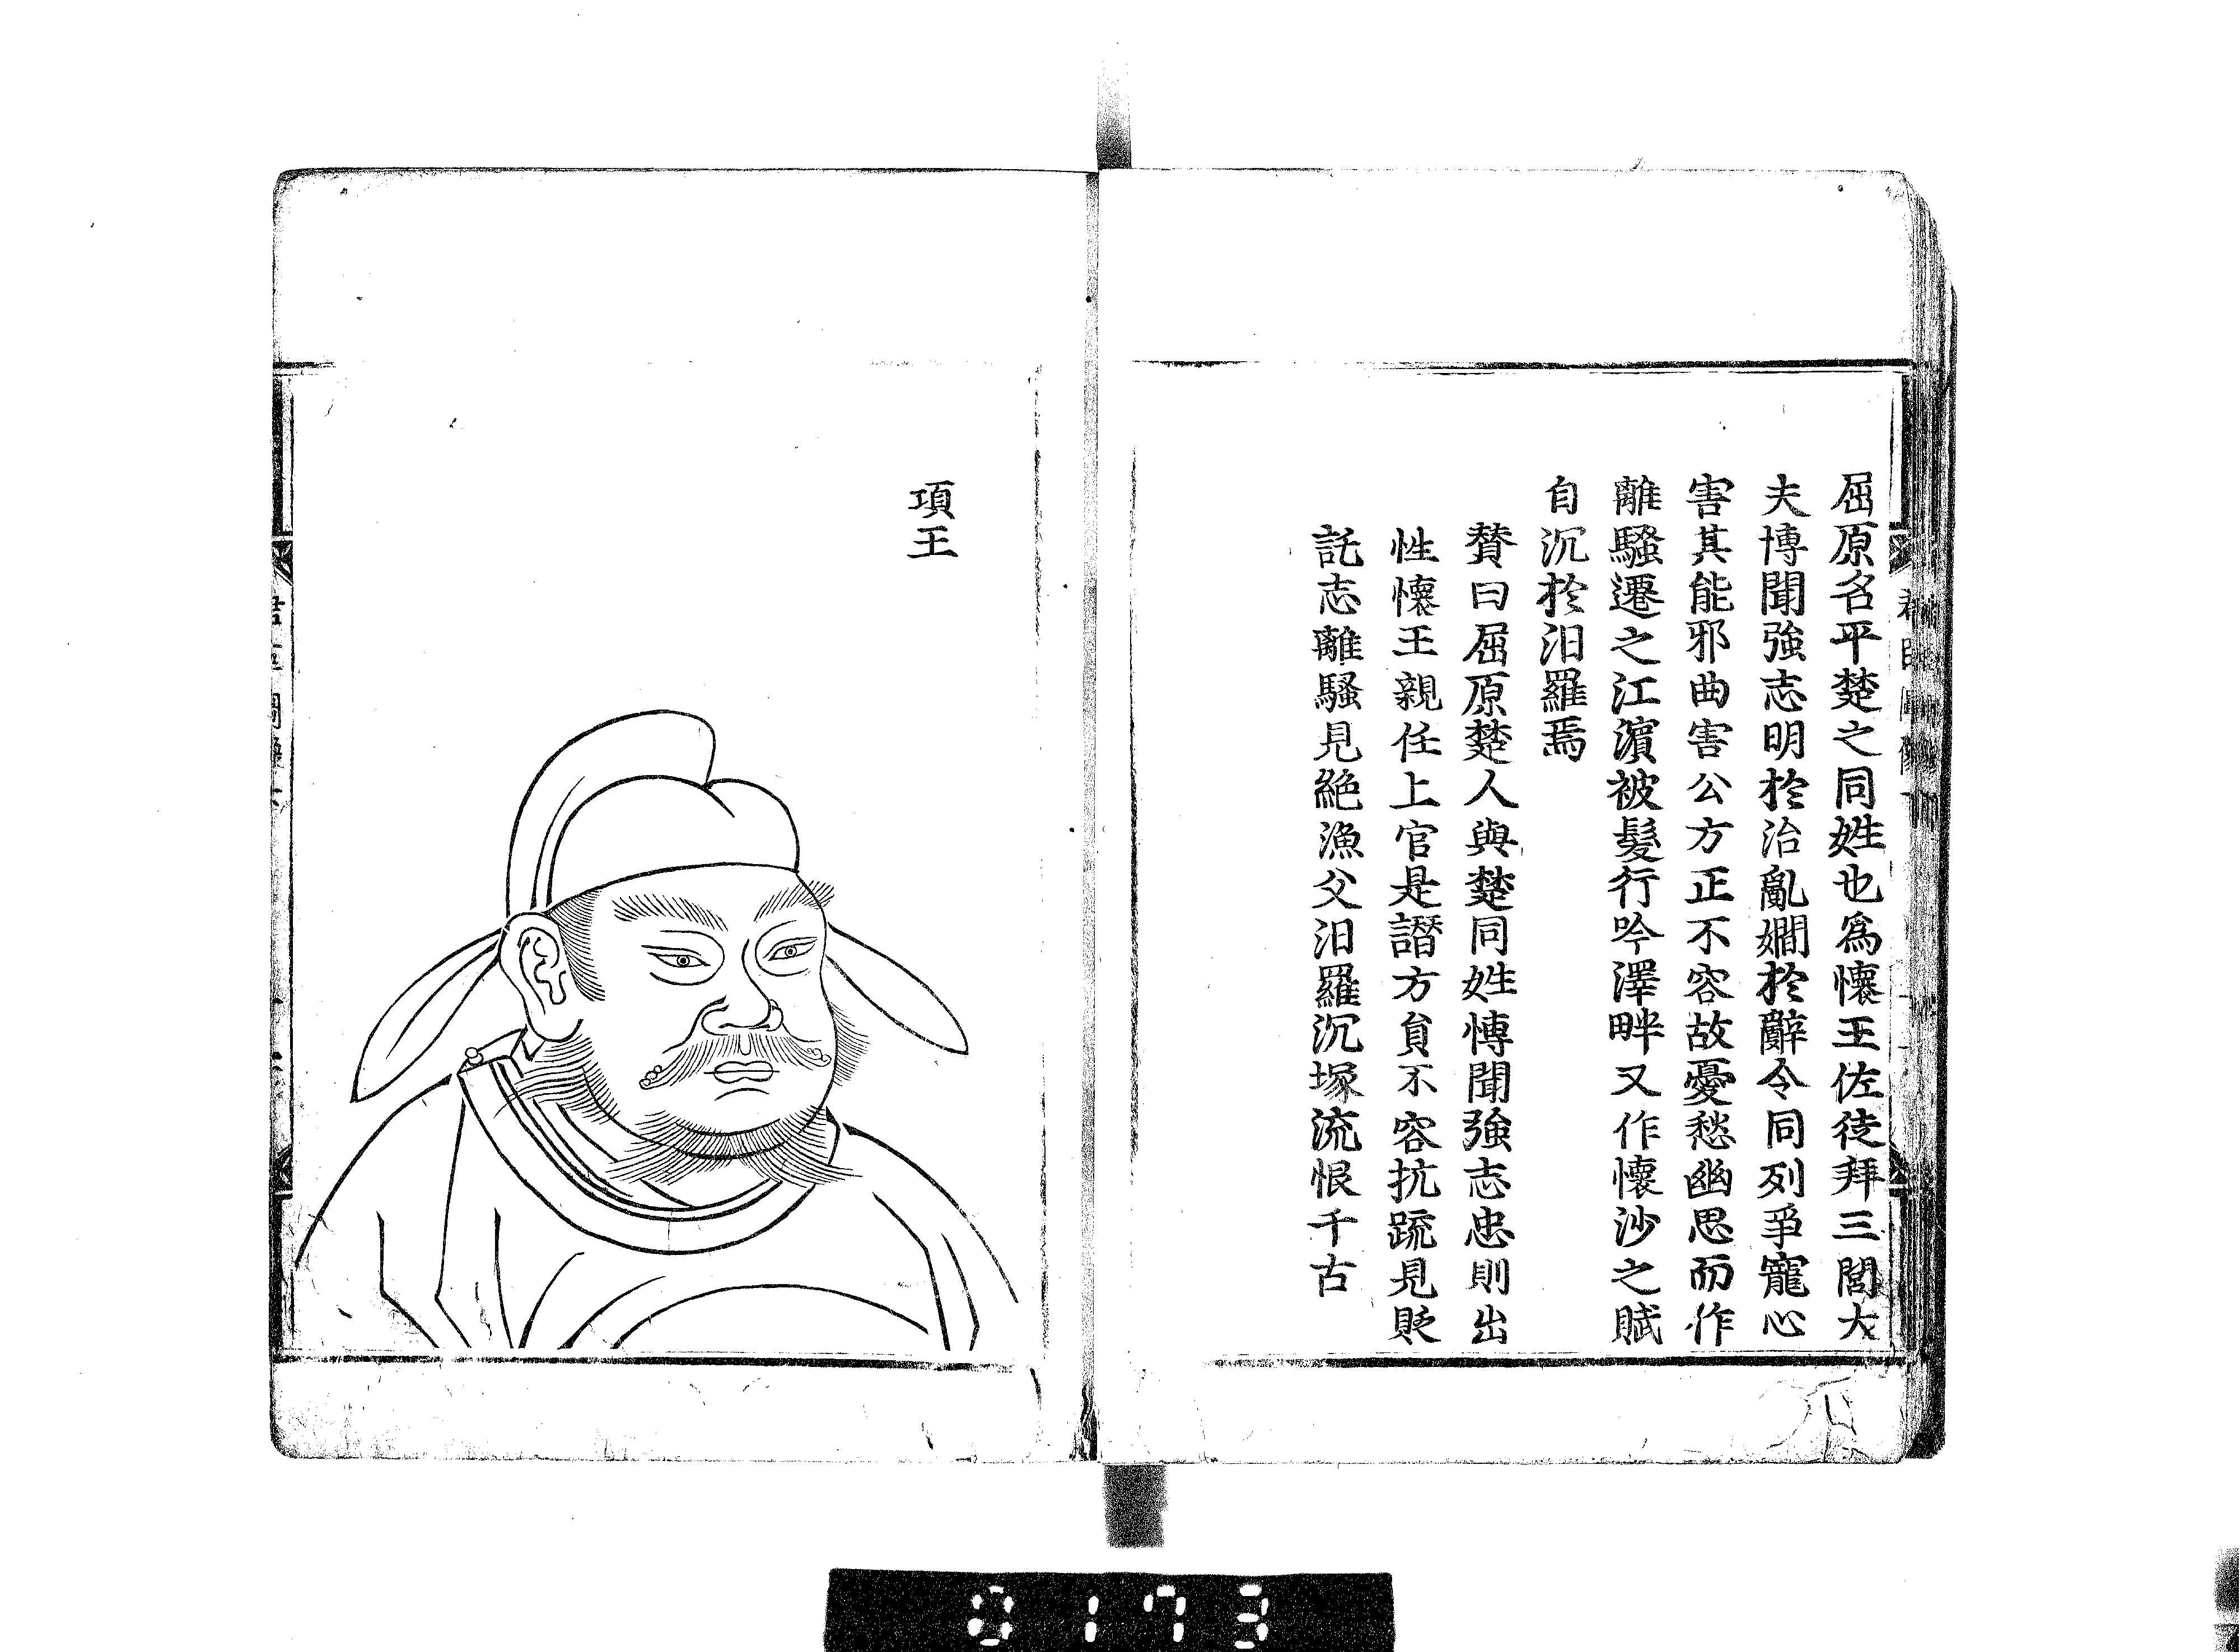 屈原名平楚之同姓也爲懷王佐徒拜三閭大
夫博聞強志明於治亂嫺於辭令同列爭寵心
害其能邪曲害公方正不容故憂愁幽思而作
離騷遷之江濵被髮行吟澤畔又作懷沙之賦
自沉於汨羅焉
賛曰屈原楚人與楚同姓愽聞強志忠則出
性懷王親任上官是譖方貟不容抗䟽見貶
託志離騷見絶漁父汨羅沉塚流恨千古
項王
0173